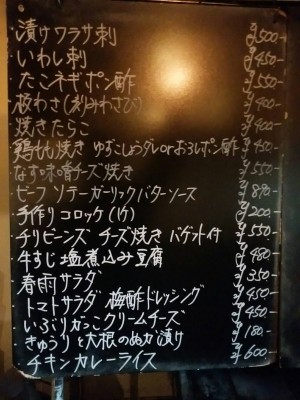 ・漬けワラサ刺 ¥500-
・いわし刺 ¥450-
・たこネギポン酢 ¥550-
・板わさ(刻みわさび) ¥400-
・焼きたらこ ¥400-
・鶏もも焼き ゆずこしょうダレorおろしポン酢 ¥450-
・なす味噌チーズ焼き ¥550-
・ビーフソテーガーリックバターソース ¥890-
・手作りコロッケ(1ケ) ¥200-
・チリビーンズ チーズ焼き バゲット付 ¥550-
・牛すじ塩煮込み豆腐 ¥480-
・春雨サラダ ¥350-
・トマトサラダ 梅酢ドレッシング ¥450-
・いぶりがっこクリームチーズ ¥450-
・きゅうりと大根のぬか漬け ¥180-
・チキンカレーライス ¥600-